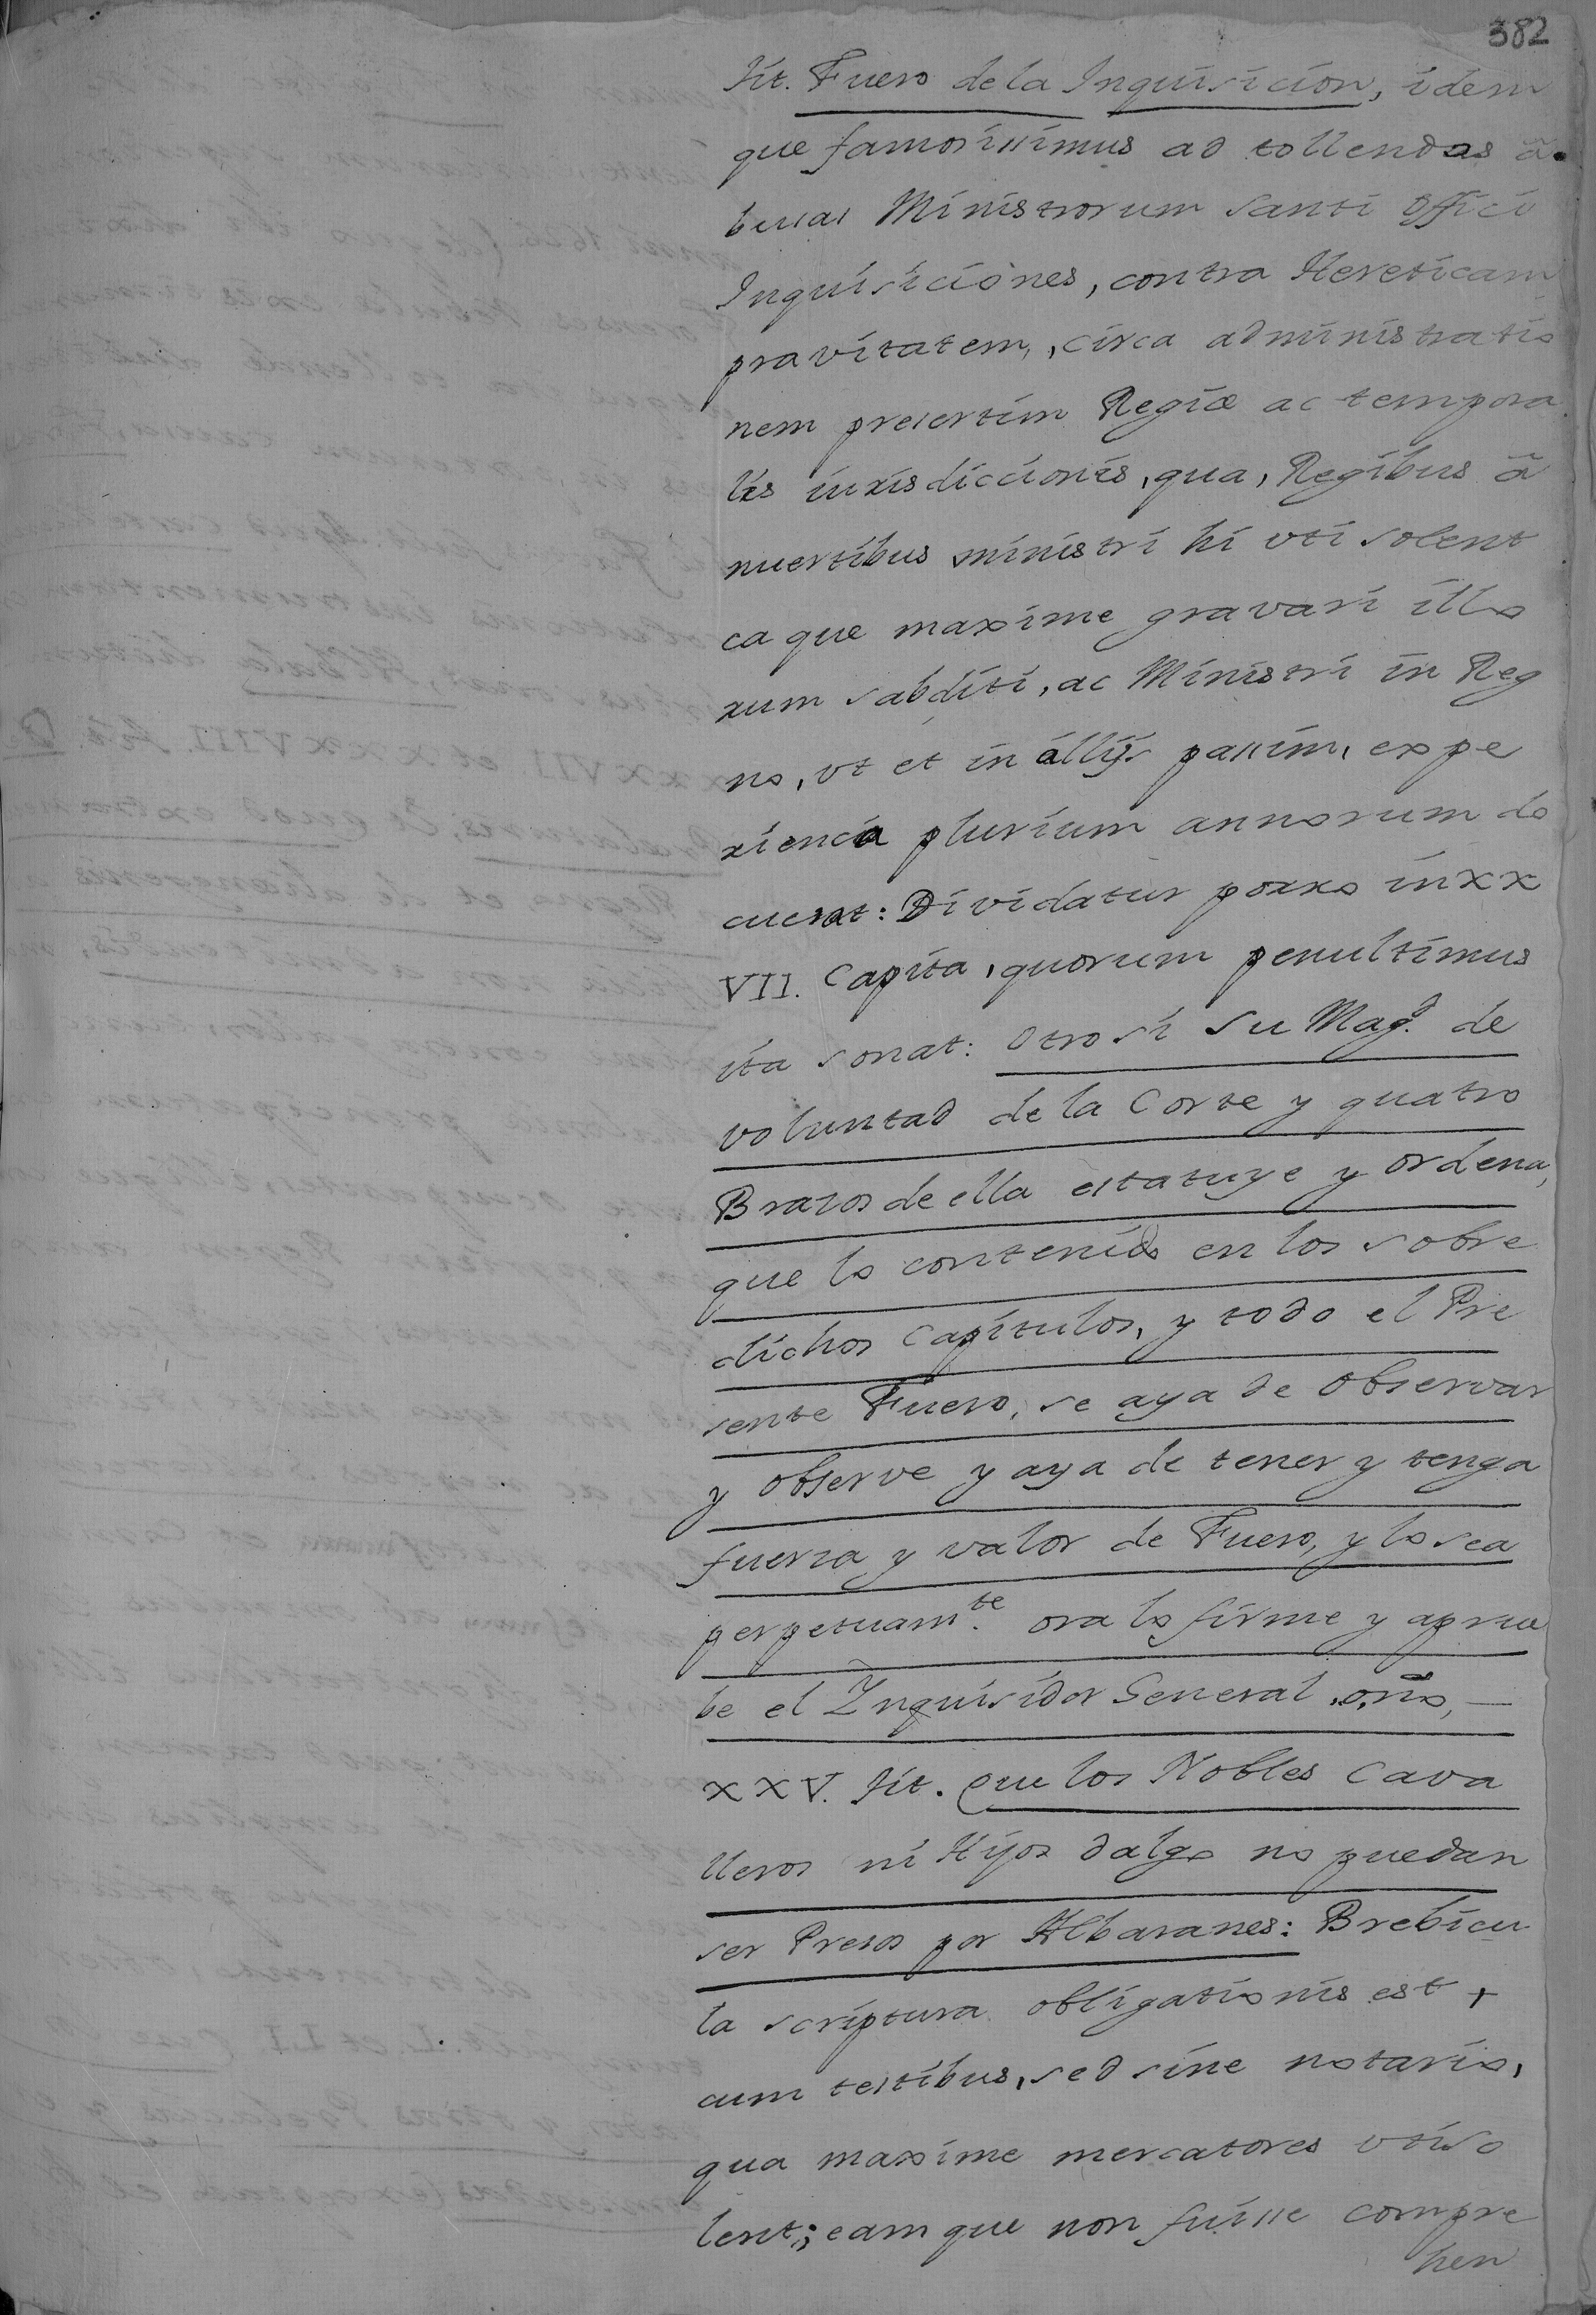 382
tit. Fuero de la Inquisicion, idem
que famosissimus ad tollendas ã
busas Ministrorum Santi Offici
Inquisiciònes, contra Hereticam
pravitatem, circa administratio
nem presertim Regiæ ac tempora
lis iurisdiccionis, qua, Regibus ã
nuertibus ministri hi vti solent
ca que maxime gravari illo
rum sabditi, ac Ministri in Reg
no, vt et in allijs passim, expe
riencia plurium annorum do
cuerat: Dividatur porro in XX
VII. Capita, quorum penultimus
ita sonat: otrosi su Magd. de
voluntad de la Corte y quatro
Brazos de ella estatuye y ordena,
que lo contenido en los sobre
dichos Capitulos, y todo el Pre
sente Fuero, se aya de observar
y observe y aya de tener y tenga
fuerza y valor de Fuero, y lo sea
perpetuamte. ora lo firme y aprue
be el Inquisidor General, o, nõ, —
XXV. tit. Que los Nobles Cava
lleros ni Hijos dalgo no puedan
ser Presos por Albaranes: Brebicu
la scriptura obligationis est,
cum testibus, sed sine notario,
qua maxime mercatores vtiso
lent; eamque non fuisse compre
hen